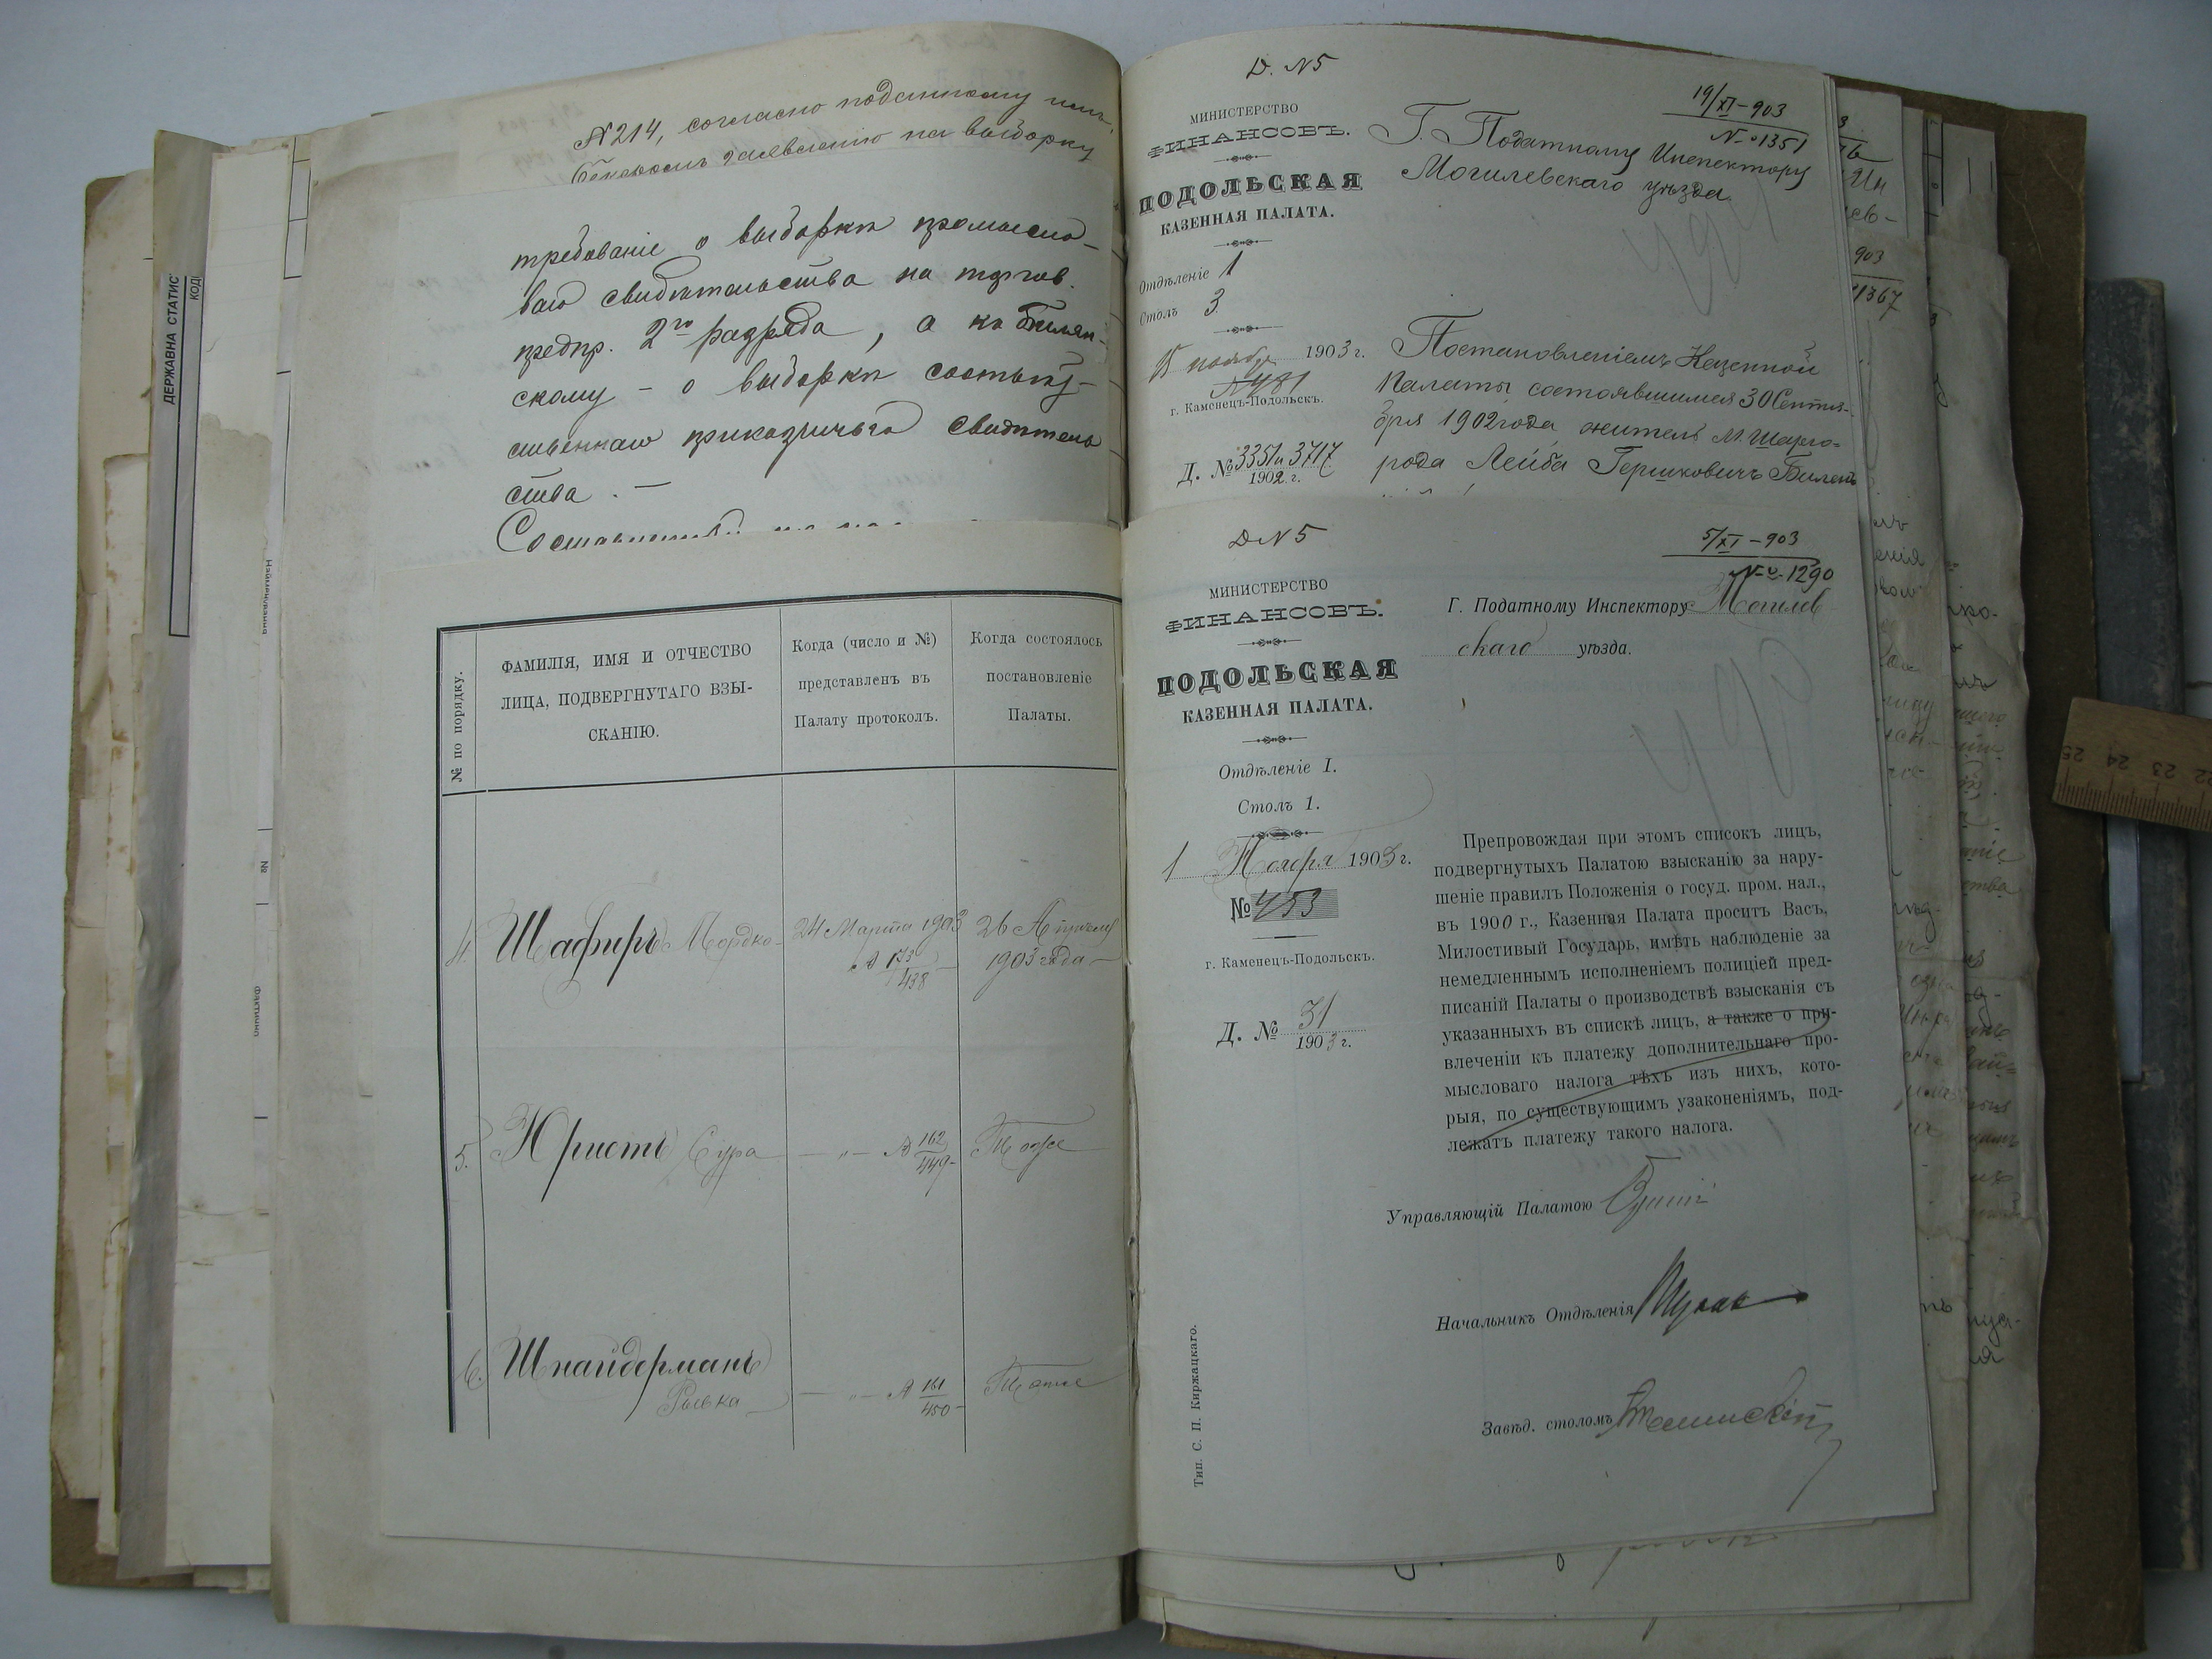 № 214, согласно поданному
заявленію на выборку
требованіе о выборкѣ промысло-
ваго свидѣтельства на торгов.
предпр. 2го разряда, а къ Билян-
скому – о выборкѣ
приказчичьяго свидѣтель
ства. –
№ по порядку.
ФАМИЛІЯ, ИМЯ И ОТЧЕСТВО
ЛИЦА, ПОДВЕРГНУТАГО ВЗЫ-
СКАНІЮ.
Когда (число и №)
представленъ въ
Палату протоколъ.
Когда состоялось
постановленіе
Палаты.
4. Шафиръ Мордко 24 Марта 1903 26 Апрѣля
438 1903 года
5. Юристъ Сура – „ – № 162 Тоже
449
6. Шнайдерманъ
Рывка – „ – № 161 Тоже
450
Д. №5
19/XI–903
№ 1351
МИНИСТЕРСТВО
ФИНАНСОВЪ.
ПОДОЛЬСКАЯ
КАЗЕННАЯ ПАЛАТА.
Отдѣленіе 1
Столъ 3
15 ноября 1903 г.
№ 481
г. Каменецъ-Подольскъ.
Д. № 3351 и 3717
1902 г.
Г. Податному Инспектору
Могилевскаго уѣзда.
Постановленіемъ Казенной
Палаты, состоявшимся 30 Сентя-
бря 1902 года, житель м. Шарго-
рода Лейба Гершковичъ Билян
Д №5
5/XI–903
№ 1290
МИНИСТЕРСТВО
ФИНАНСОВЪ.
ПОДОЛЬСКАЯ
КАЗЕННАЯ ПАЛАТА.
Отдѣленіе I.
Столъ 1.
1 Ноября 1903 г.
№ 453
г. Каменецъ-Подольскъ.
Д. № 31
1903 г.
Г. Податному Инспектору Могилев
скаго уѣзда.
Препровождая при этомъ списокъ лицъ,
подвергнутыхъ Палатою взысканію за нару-
шеніе правилъ Положенія о госуд. пром. нал.,
въ 1900 г., Казенная Палата проситъ Васъ,
Милостивый Государь, имѣть наблюденіе за
немедленнымъ исполненіемъ полиціей пред-
писаній Палаты о производствѣ взысканія съ
указанныхъ въ спискѣ лицъ, а также о при-
влеченіи къ платежу дополнительнаго про-
мысловаго налога тѣхъ изъ нихъ, кото-
рыя, по существующимъ узаконеніямъ, под-
лежатъ платежу такого налога.
Управляющій Палатою
Начальникъ Отдѣленія
Завѣд. столомъ
Тип. С. П. Киржацкаго.
ДЕРЖАВНА СТАТИС
КОДИ
903
1367
25 24 23 22